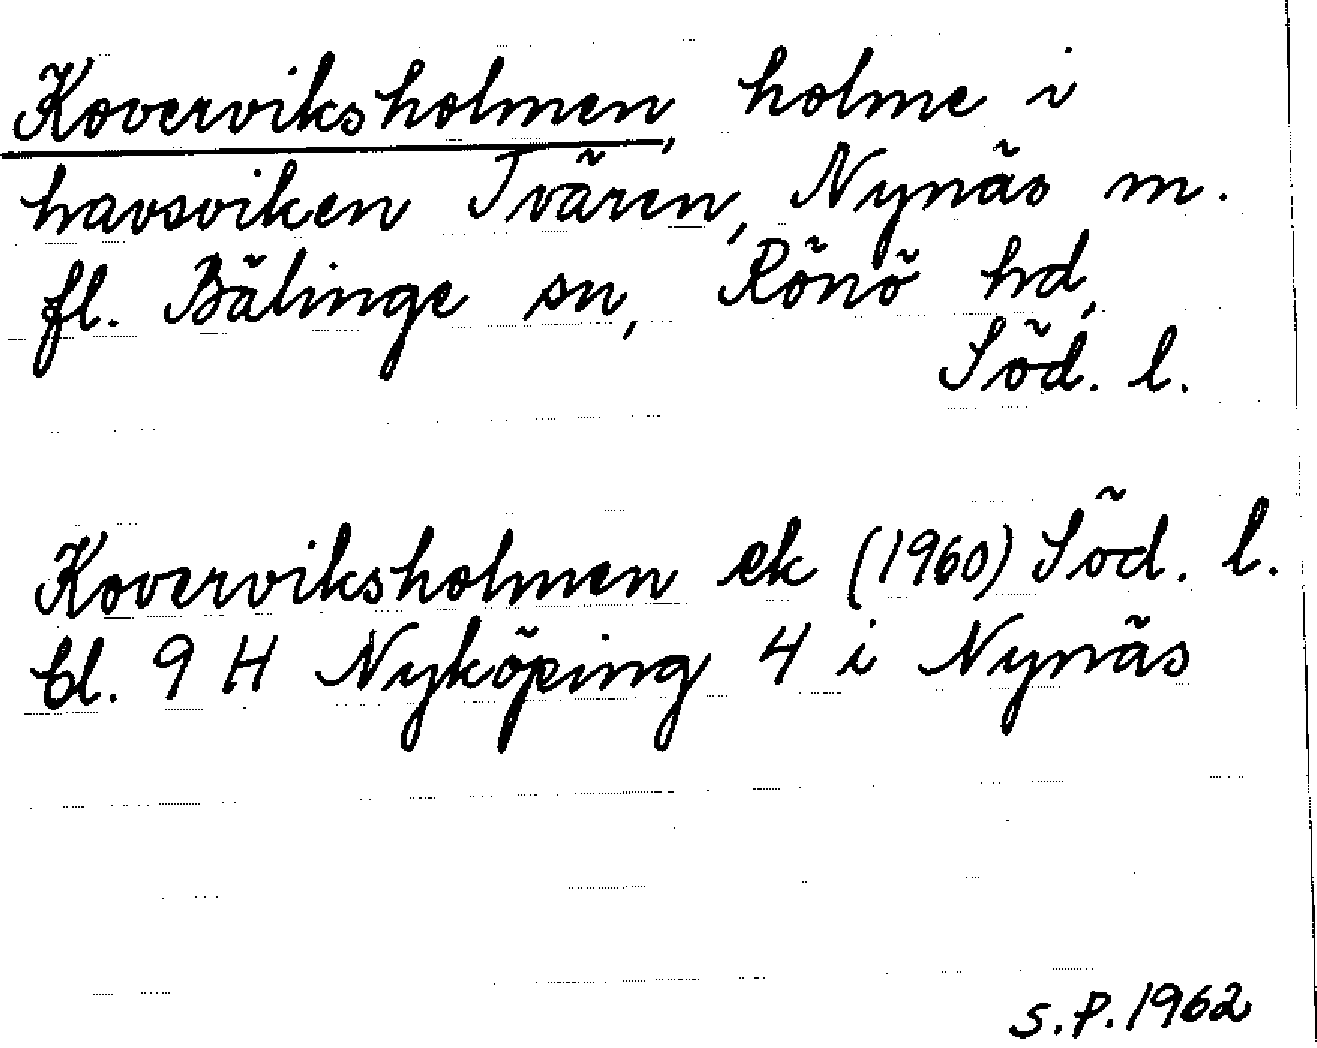 Koverviksholmen, holme i
havsviken Tvären, Nynäs m.
fl. Bälinge sn, Rönö hd,
Söd. l.
Koverviksholmen ek (1960) Söd. l.
bl. 9 H Nyköping 4 i Nynäs
S.P. 1962